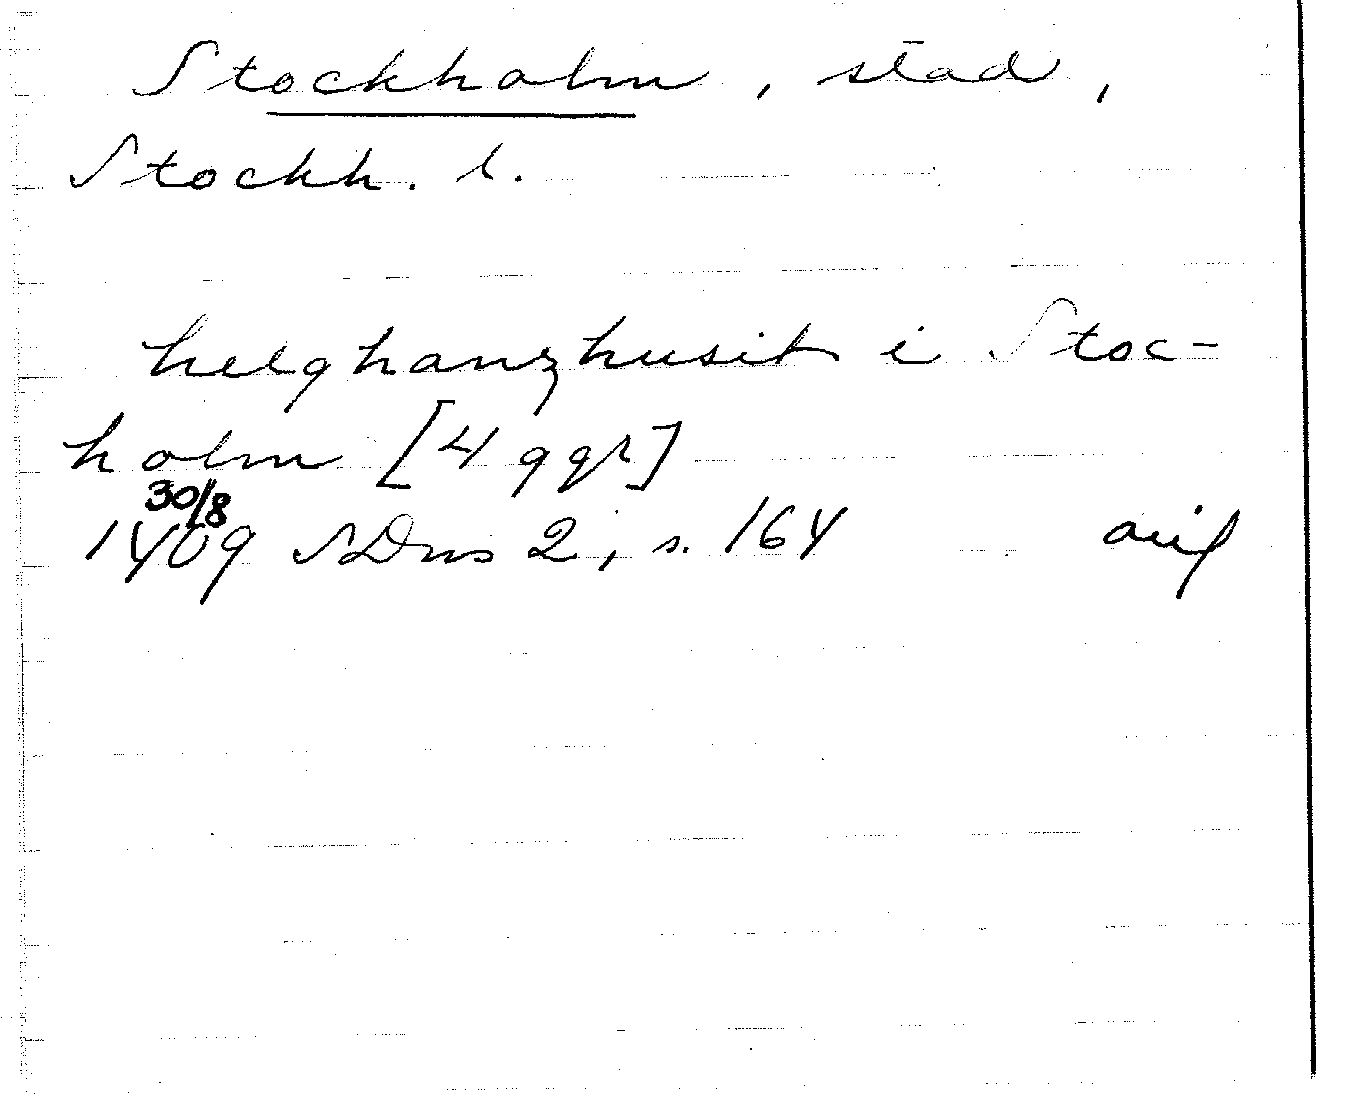 Stockholm, stad,
Stockh. l.
helghanzhusit i Stoc-
holm [4 ggr]
30/8
1409 SDns 2, s. 164 avif